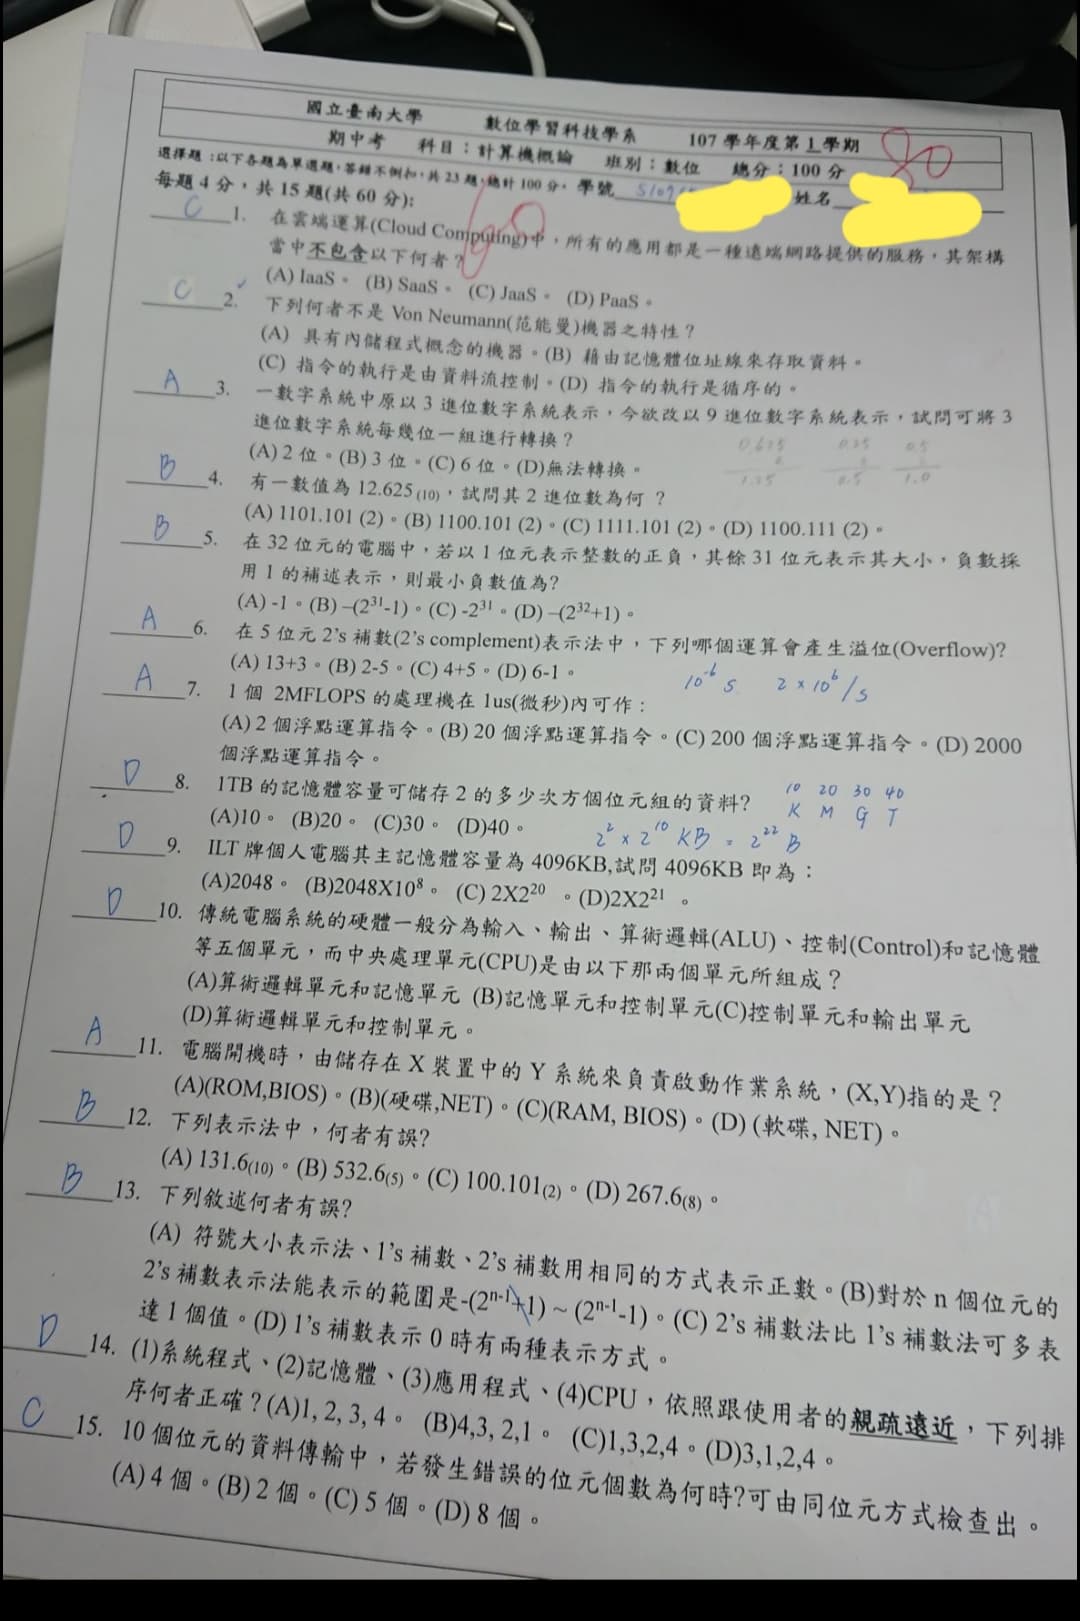 國立臺南大學 數位學習科技學系 107 學年度第 1 學期
期中考 科目：計算機概論 班別：數位 總分：100 分
80
選擇題：以下各題為單選題，答錯不倒扣，共 23 題，總計 100 分。 學號 S109 姓名
每題 4 分，共 15 題(共 60 分)：
60
C 1. 在雲端運算(Cloud Computing)中，所有的應用都是一種遠端網路提供的服務，其架構
當中不包含以下何者？
(A) IaaS。 (B) SaaS。 (C) JaaS。 (D) PaaS。
C 2. 下列何者不是 Von Neumann(范能曼)機器之特性？
(A) 具有內儲程式概念的機器。(B) 藉由記憶體位址線來存取資料。
(C) 指令的執行是由資料流控制。(D) 指令的執行是循序的。
A 3. 一數字系統中原以 3 進位數字系統表示，今欲改以 9 進位數字系統表示，試問可將 3
進位數字系統每幾位一組進行轉換？
(A) 2 位。(B) 3 位。(C) 6 位。(D)無法轉換。
0.625 0.25 0.5
2
1.25 0.5 1.0
B 4. 有一數值為 12.625 (10)，試問其 2 進位數為何 ？
(A) 1101.101 (2)。(B) 1100.101 (2)。(C) 1111.101 (2)。(D) 1100.111 (2)。
B 5. 在 32 位元的電腦中，若以 1 位元表示整數的正負，其餘 31 位元表示其大小，負數採
用 1 的補述表示，則最小負數值為?
(A) -1。(B) –(2³¹-1)。(C) -2³¹。(D) –(2³²+1)。
A 6. 在 5 位元 2’s 補數(2’s complement)表示法中，下列哪個運算會產生溢位(Overflow)?
(A) 13+3。(B) 2-5。(C) 4+5。(D) 6-1。
10⁻⁶ s 2 x 10⁶ /s
A 7. 1 個 2MFLOPS 的處理機在 1us(微秒)內可作：
(A) 2 個浮點運算指令。(B) 20 個浮點運算指令。(C) 200 個浮點運算指令。(D) 2000
個浮點運算指令。
D 8. 1TB 的記憶體容量可儲存 2 的多少次方個位元組的資料?
10 20 30 40
K M G T
(A)10。 (B)20。 (C)30。 (D)40。
2² x 2¹⁰ KB = 2²² B
D 9. ILT 牌個人電腦其主記憶體容量為 4096KB,試問 4096KB 即為：
(A)2048。 (B)2048X10⁸。 (C) 2X2²⁰ 。(D)2X2²¹ 。
D 10. 傳統電腦系統的硬體一般分為輸入、輸出、算術邏輯(ALU)、控制(Control)和記憶體
等五個單元，而中央處理單元(CPU)是由以下那兩個單元所組成？
(A)算術邏輯單元和記憶單元 (B)記憶單元和控制單元(C)控制單元和輸出單元
(D)算術邏輯單元和控制單元。
A 11. 電腦開機時，由儲存在 X 裝置中的 Y 系統來負責啟動作業系統，(X,Y)指的是？
(A)(ROM,BIOS)。(B)(硬碟,NET)。(C)(RAM, BIOS)。(D) (軟碟, NET)。
B 12. 下列表示法中，何者有誤?
(A) 131.6(10)。(B) 532.6(5)。(C) 100.101(2)。(D) 267.6(8)。
B 13. 下列敘述何者有誤?
(A) 符號大小表示法、1’s 補數、2’s 補數用相同的方式表示正數。(B)對於 n 個位元的
2’s 補數表示法能表示的範圍是-(2ⁿ⁻¹+1) ~ (2ⁿ⁻¹-1)。(C) 2’s 補數法比 1’s 補數法可多表
達 1 個值。(D) 1’s 補數表示 0 時有兩種表示方式。
D 14. (1)系統程式、(2)記憶體、(3)應用程式、(4)CPU，依照跟使用者的親疏遠近，下列排
序何者正確？(A)1, 2, 3, 4。 (B)4,3, 2,1。 (C)1,3,2,4。(D)3,1,2,4。
C 15. 10 個位元的資料傳輸中，若發生錯誤的位元個數為何時?可由同位元方式檢查出。
(A) 4 個。(B) 2 個。(C) 5 個。(D) 8 個。